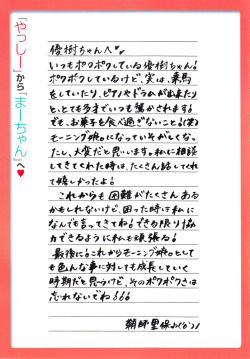 「やっしー」から「まーちゃん」へ♥
優樹ちゃんへ♥
いつもポワポワしている優樹ちゃん!
ポワポワしているけど、実は、乗馬
をしていたり、ピアノやドラムが出来たり
と、とても多才でいつも驚かされます!
でも、お菓子を食べ過ぎないこと!(笑)
モーニング娘。になっていそがしくな。
たし、大変だと思います。私に相談
してきてくれた時は、たくさん話してくれ
て嬉しかったよ!
これからも困難がたくさんある
かもしれないけど、困った時は私に
なんでも言ってきてね!できる限り協
力できるように私も頑張る!
最後に!これからモーニング娘。として
も色んな事に対しても成長していく
時期だと思うけど、そのポワポワさは
忘れないでね!!!
鞘師里保